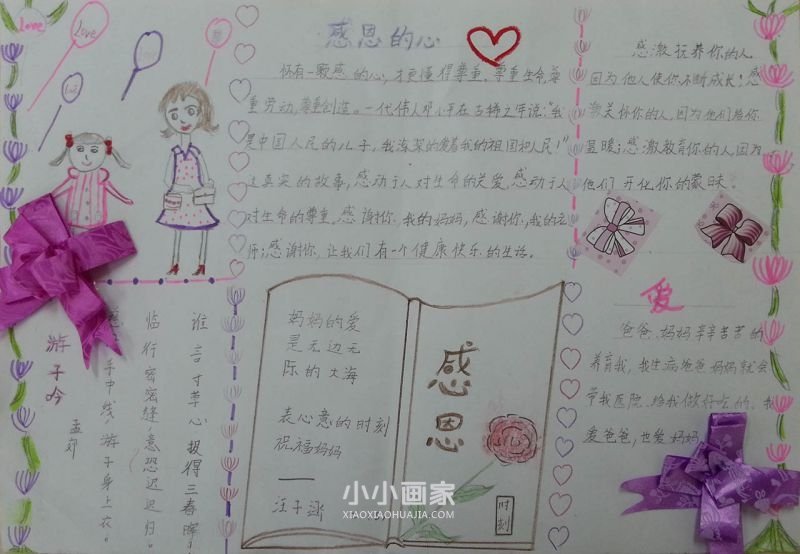 Love
Love
感恩的心
怀有一颗感的心，才更懂得尊重，尊重生命，尊
重劳动，尊重创造。一代伟人邓小平在古稀之年说："我
是中国人民的儿子，我深深的爱着我的祖国和人民！"
这真实的故事，感动于人对生命的关爱，感动于人
对生命的尊重。感谢你，我的妈妈，感谢你，我的老
师；感谢你，让我们有一个健康快乐的生活。
感激抚养你的人，
因为他人使你不断成长！感
激关怀你的人，因为他们给你
温暖；感激教育你的人，因为
他们开化你的蒙昧。
爱
爸爸、妈妈辛辛苦苦的
养育我，我生病爸爸妈妈就会
带我医院、给我做好吃的，我
爱爸爸，也爱妈妈
游子吟
孟郊
手中线，游子身上衣。
临行密密缝，意恐迟迟归。
谁言寸草心，报得三春晖。
妈妈的爱
是无边无
际的大海
表心意的时刻
祝福妈妈
——
汪子涵
感恩
时刻
小小画家
XIAOXIAOHUAJIA.COM